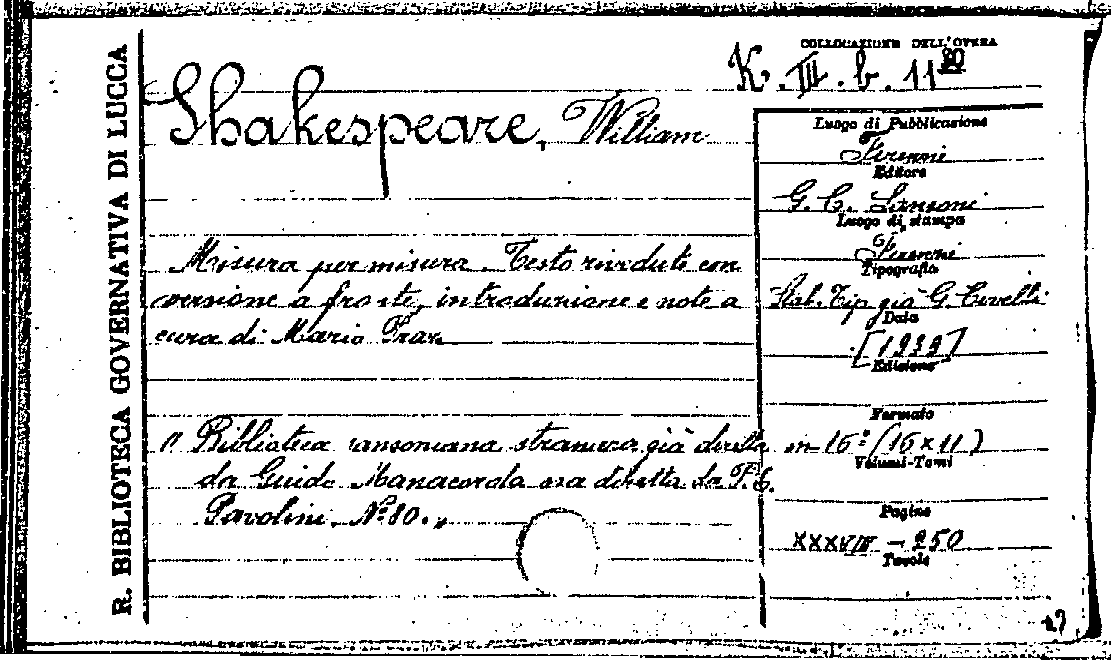 R. BIBLIOTECA GOVERNATIVA DI LUCCA
COLLOCAZIONE DELL'OPERA
K. III. b. 11 80
Shakespeare, William
Misura per misura. Testo riveduto con
versione a fronte, introduzione e note a
cura di Mario Praz
" Biblioteca sansoniana straniera già diretta
da Guido Manacorda ora diretta da P. E.
Pavolini. Nº 80. "
Luogo di Pubblicazione
Firenze
Editore
G. C. Sansoni
Luogo di stampa
Firenze
Tipografia
Stab. Tip. già G. Civelli
Data
[1939]
Edizione
Formato
in-16º (16 x 11)
Volumi-Tomi
Pagine
XXXVIII - 250
Tavole